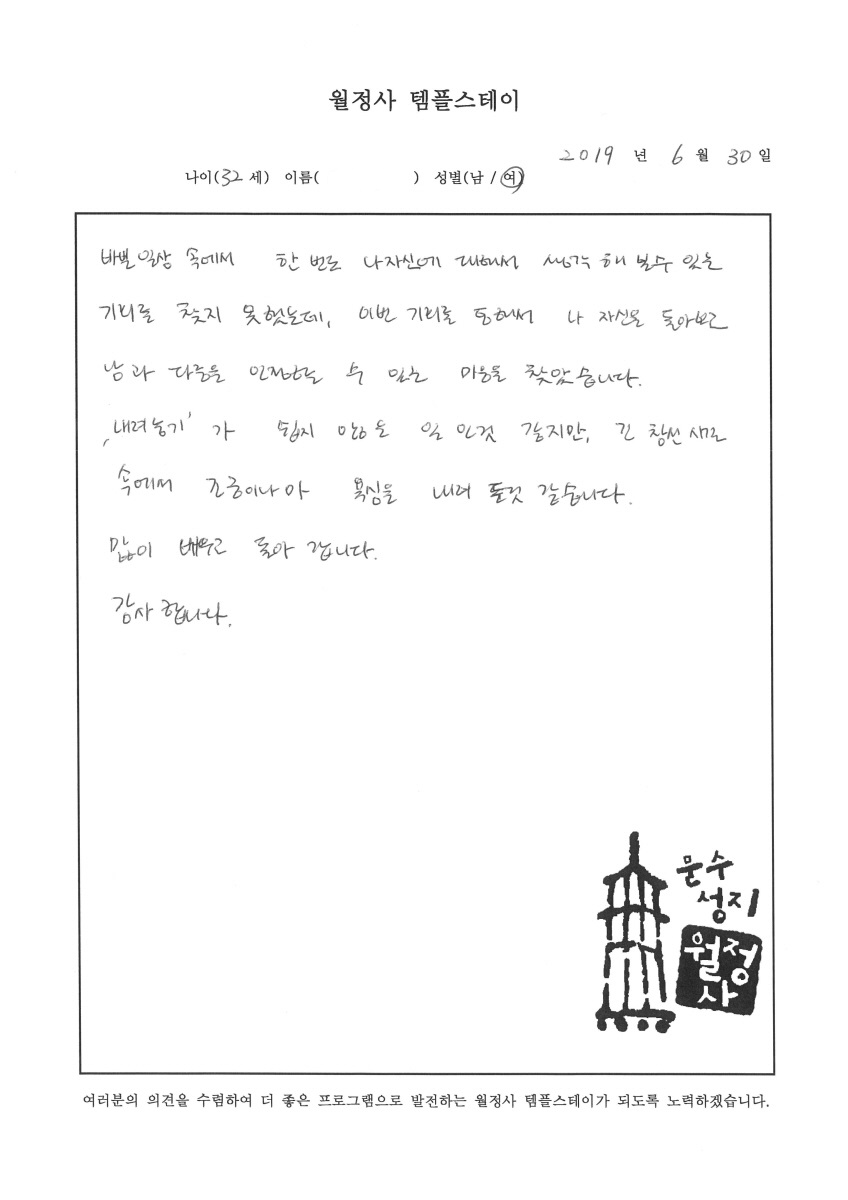 월정사 템플스테이
2019 년 6 월 30 일
나이(32 세) 이름( ) 성별(남 / 여)
바쁜 일상 속에서 한 번도 나 자신에 대해서 생각 해 볼수 있는
기회를 찾지 못했는데, 이번 기회를 통해서 나 자신을 돌아보고
남과 다름을 인정하는 수 있는 마음을 찾았습니다.
'내려놓기' 가 쉽지 않을 일 인것 같지만, 긴
속에서 조금이나마 욕심을 내려 둘것 같습니다.
많이 배우고 돌아 갑니다.
감사 합니다.
문수
성지
월정
사
여러분의 의견을 수렴하여 더 좋은 프로그램으로 발전하는 월정사 템플스테이가 되도록 노력하겠습니다.